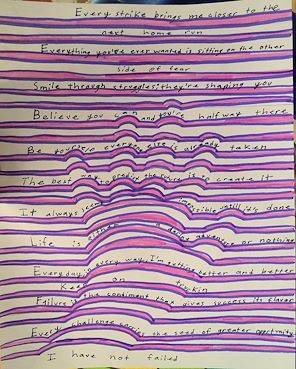 Every strike brings me closer to the
next home run
Everything you've ever wanted is sitting on the other
side of fear
Smile through struggles; they're shaping you
Believe you can and you're halfway there
Be yourself; everyone else is already taken
The best way to predict the future is to create it
It always seems impossible until it's done
Life is a daring adventure or nothing
Everyday in every way, I'm getting better and better
Keep on truckin
Failure is the condiment that gives success its flavor
Every challenge carries the seed of greater opportunity
I have not failed